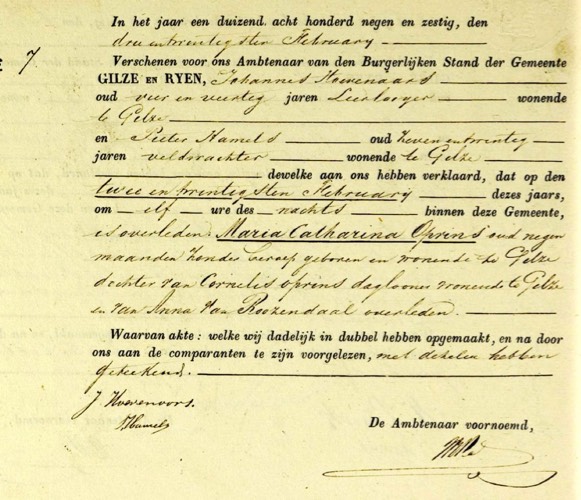 In het jaar een duizend acht honderd negen en zestig, den
drieentwintigsten February
7
Verschenen voor ons Ambtenaar van den Burgerlijken Stand der Gemeente
GILZE EN RYEN, Johannes
oud vier en veertig jaren wonende
te Gilze
en Peeter Hamels oud zeven entwintig
jaren veldwachter wonende te Gilze
dewelke aan ons hebben verklaard, dat op den
twee en twintigsten February dezes jaars,
om elf ure des nachts binnen deze Gemeente,
is overleden Maria Catharina Oprins oud negen
maanden zonder beroep geboren en wonende te Gilze
dochter van Cornelis Oprins daglooner wonende te Gilze
en van Anna van Roozendaal overleden.
Waarvan akte: welke wij dadelijk in dubbel hebben opgemaakt, en na door
ons aan de comparanten te zijn voorgelezen, met dezelen hebben
geteekend.
J
PHamels
De Ambtenaar voornoemd,